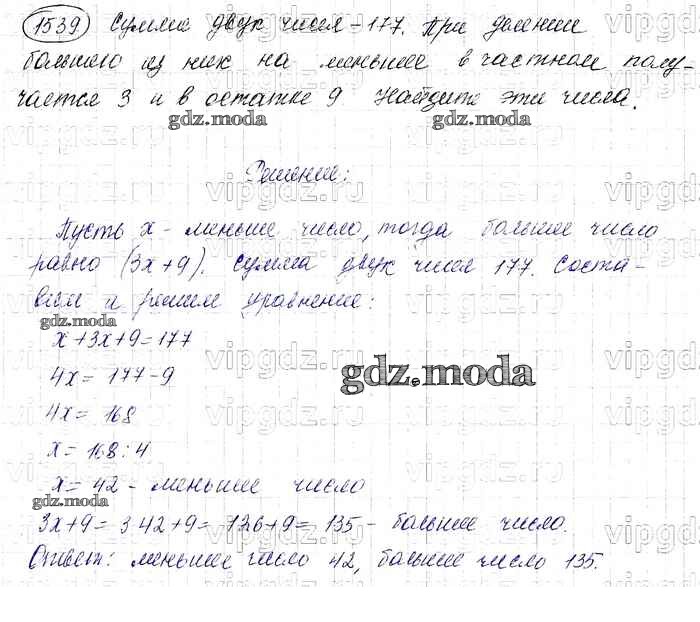 1539 Сумма двух чисел - 177. При делении
большего из них на меньшее в частном полу-
чается 3 и в остатке 9. Найдите эти числа.
gdz.moda gdz.moda
Решение:
Пусть x - меньшее число, тогда большее число
равно (3x+9). Сумма двух чисел 177. Соста-
вим и решим уравнение:
gdz.moda
x+3x+9=177
4x= 177-9
gdz.moda
4x= 168
x= 168:4
x= 42 - меньшее число
gdz.moda
3x+9= 3·42+9= 126+9= 135 - большее число.
Ответ: меньшее число 42, большее число 135.
vipgdz.ru